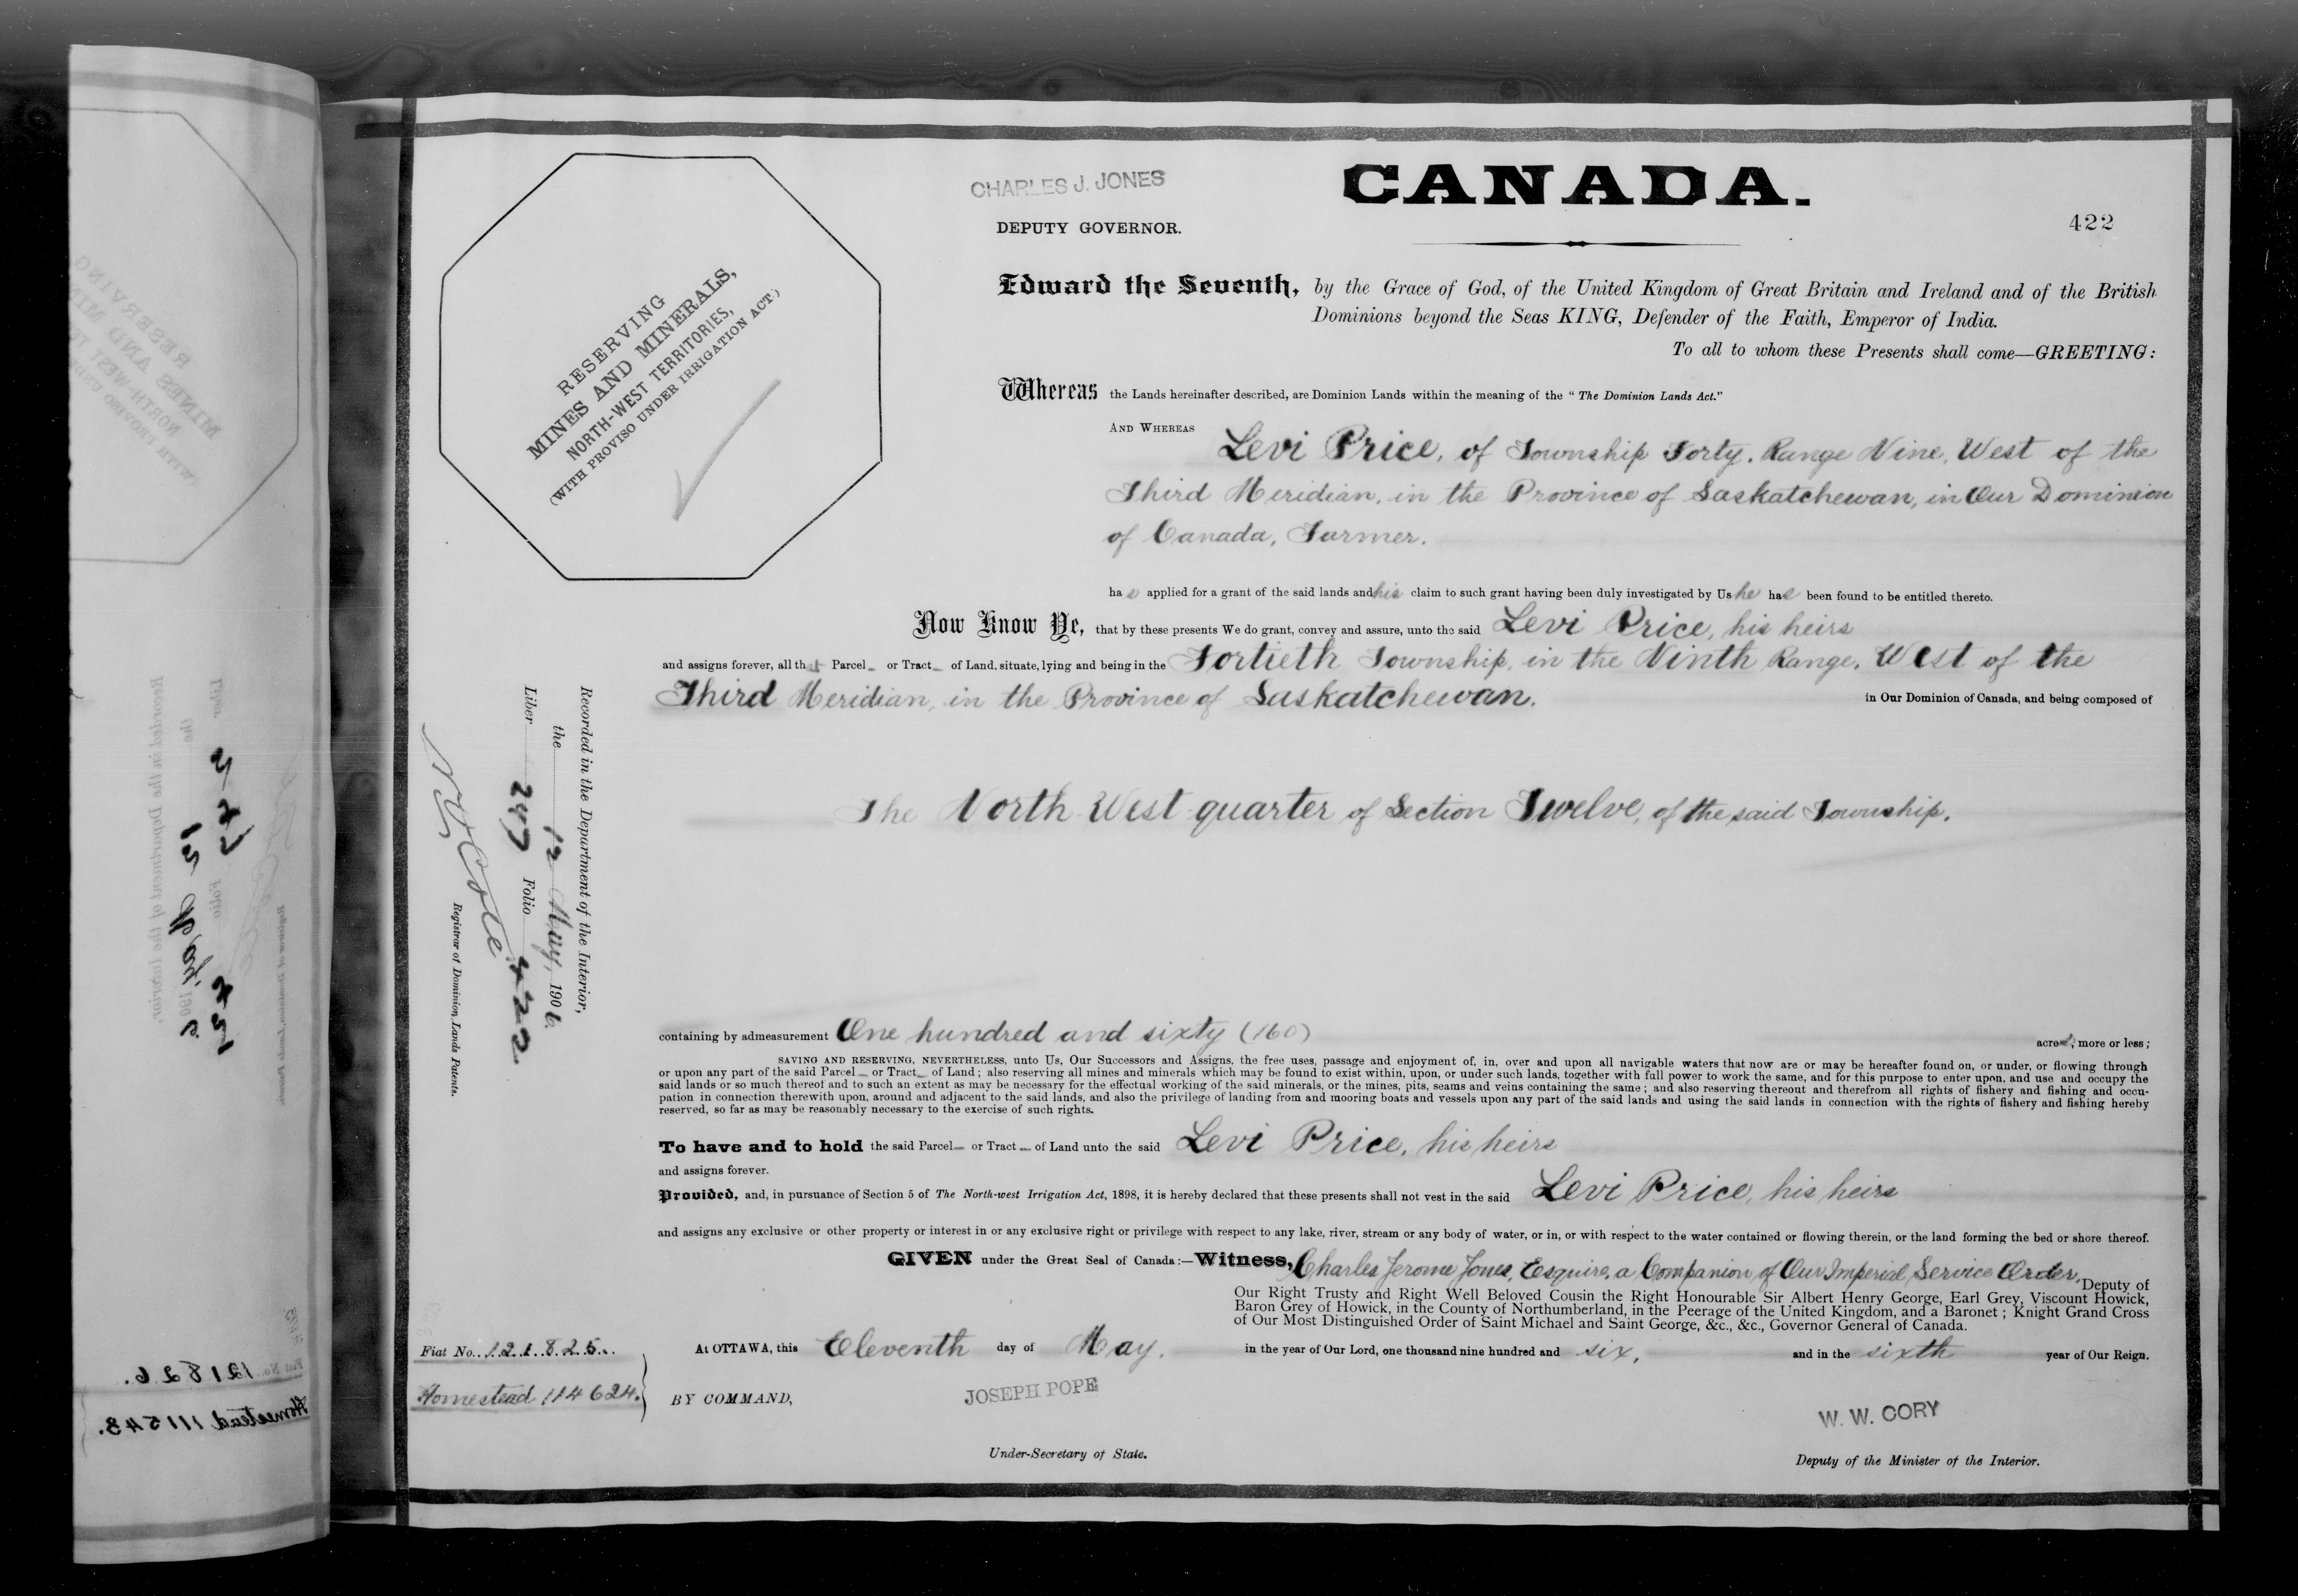 CHARLES J. JONES
DEPUTY GOVERNOR.
CANADA.
422
RESERVING
MINES AND MINERALS,
NORTH-WEST TERRITORIES,
(WITH PROVISO UNDER IRRIGATION ACT)
Edward the Seventh, by the Grace of God, of the United Kingdom of Great Britain and Ireland and of the British
Dominions beyond the Seas KING, Defender of the Faith, Emperor of India.
To all to whom these Presents shall come—GREETING:
Whereas the Lands hereinafter described, are Dominion Lands within the meaning of the "The Dominion Lands Act."
AND WHEREAS
Levi Price, of Township Forty. Range Nine, West of the
Third Meridian, in the Province of Saskatchewan, in Our Dominion
of Canada, Farmer.
has applied for a grant of the said lands and his claim to such grant having been duly investigated by Us he has been found to be entitled thereto.
Now Know Ye, that by these presents We do grant, convey and assure, unto the said Levi Price, his heirs
and assigns forever, all that Parcel or Tract of Land, situate, lying and being in the Fortieth Township, in the Ninth Range, West of the
Third Meridian, in the Province of Saskatchewan. in Our Dominion of Canada, and being composed of
The North West quarter of Section Twelve, of the said Township.
containing by admeasurement One hundred and sixty (160) acres, more or less;
SAVING AND RESERVING, NEVERTHELESS, unto Us, Our Successors and Assigns, the free uses, passage and enjoyment of, in, over and upon all navigable waters that now are or may be hereafter found on, or under, or flowing through
or upon any part of the said Parcel or Tract of Land; also reserving all mines and minerals which may be found to exist within, upon, or under such lands, together with full power to work the same, and for this purpose to enter upon, and use and occupy the
said lands or so much thereof and to such an extent as may be necessary for the effectual working of the said minerals, or the mines, pits, seams and veins containing the same; and also reserving thereout and therefrom all rights of fishery and fishing and occu-
pation in connection therewith upon, around and adjacent to the said lands, and also the privilege of landing from and mooring boats and vessels upon any part of the said lands and using the said lands in connection with the rights of fishery and fishing hereby
reserved, so far as may be reasonably necessary to the exercise of such rights.
To have and to hold the said Parcel or Tract of Land unto the said Levi Price, his heirs
and assigns forever.
Provided, and, in pursuance of Section 5 of The North-west Irrigation Act, 1898, it is hereby declared that these presents shall not vest in the said Levi Price, his heirs
and assigns any exclusive or other property or interest in or any exclusive right or privilege with respect to any lake, river, stream or any body of water, or in, or with respect to the water contained or flowing therein, or the land forming the bed or shore thereof.
GIVEN under the Great Seal of Canada:—Witness, Charles Jerome Jones, Esquire, a Companion of Our Imperial Service Order, Deputy of
Our Right Trusty and Right Well Beloved Cousin the Right Honourable Sir Albert Henry George, Earl Grey, Viscount Howick,
Baron Grey of Howick, in the County of Northumberland, in the Peerage of the United Kingdom, and a Baronet; Knight Grand Cross
of Our Most Distinguished Order of Saint Michael and Saint George, &c., &c., Governor General of Canada.
At OTTAWA, this Eleventh day of May. in the year of Our Lord, one thousand nine hundred and six, and in the sixth year of Our Reign.
BY COMMAND,
JOSEPH POPE
Under-Secretary of State.
W. W. CORY
Deputy of the Minister of the Interior.
Recorded in the Department of the Interior,
the 12 May, 1906.
Liber 247 Folio 422
N. O. Coté
Registrar of Dominion Lands Patents.
Fiat No. 121825.
Homestead 114624.
Fiat No. 121826.
Homestead 111543.